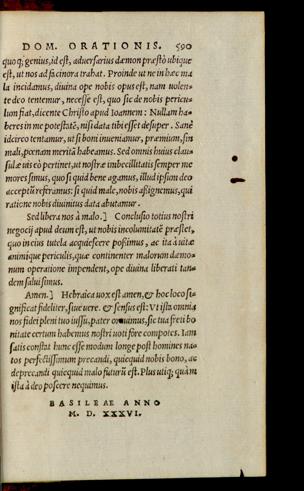 DOM. ORATIONIS. 590
quoq; genius, id est, adversarius dæmon præstò ubique
est, ut nos ad facinora trahat. Proinde ut ne in hæc ma
la incidamus, diuina ope nobis opus est, nam nolen-
te deo tentemur, necesse est, quo sic de nobis pericu-
lum fiat, dicente Christo apud Ioannem: Nullam ha-
beres in me potestatē, nisi data tibi esset desuper. Sanè
idcirco tentamur, ut si boni inueniamur, præmium, sin
mali, pœnam meritā habeamus. Sed omnis huius clau-
sulæ uis eò pertinet, ut nostræ imbecillitatis semper me
mores simus, quo si quid bene agamus, illud ipsum deo
acceptū referamus: si quid male, nobis aßignemus, qui
ratione nobis diuinitus data abutamur.
Sed libera nos à malo.] Conclusio totius nostri
negocij apud deum est, ut nobis incolumitatē præstet,
quo in eius tutela acquiescere poßimus, ac ita à uitæ
animique periculis, quæ continenter malorum dæmo-
num operatione impendent, ope diuina liberati tan-
dem salui simus.
Amen.] Hebraica uox est amen, & hoc loco si-
gnificat fideliter, siue uere. & sensus est: Vt ista omnia
nos fidei pleni tuo iussu, pater oramus, sic tua freti bo
nitate certum habemus nostri uoti fore compotes. Iam
satis constat hunc esse modum longe post homines na-
tos perfectissimum precandi, quicquid nobis bono, ac
deprecandi quicquid malo futurū est. Plus utiq; quàm
ista à deo poscere nequimus.
BASILEAE ANNO
M. D. XXXVI.